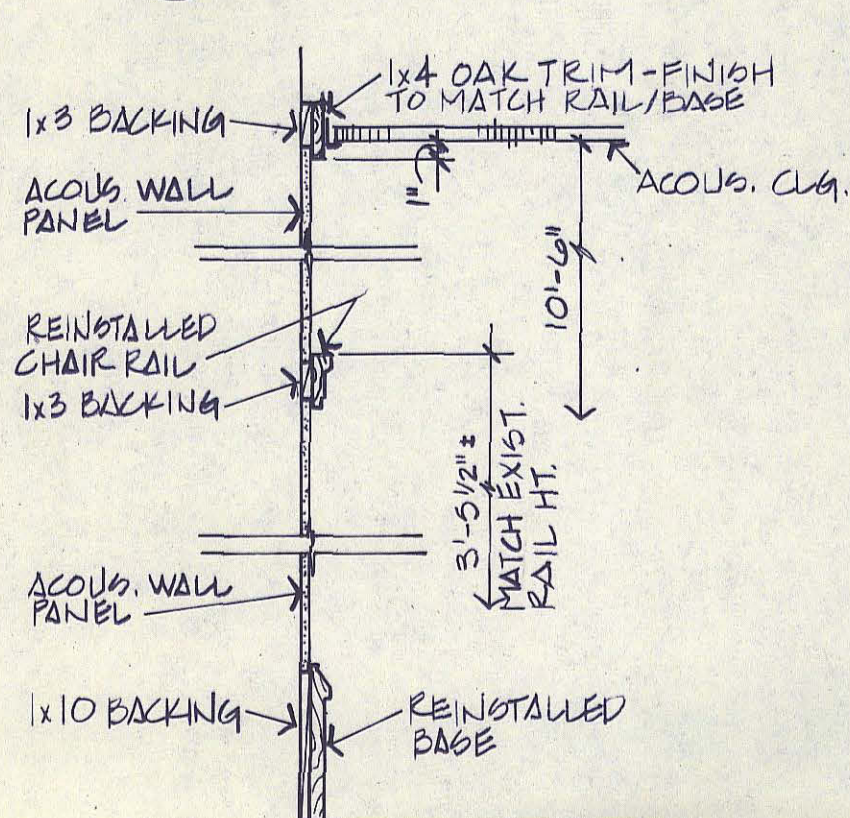 1x4 OAK TRIM-FINISH
TO MATCH RAIL/BASE
1x3 BACKING
ACOUS. WALL
PANEL
1"
ACOUS. CLG.
10'-6"
REINSTALLED
CHAIR RAIL
1x3 BACKING
3'-5 1/2" ±
MATCH EXIST.
RAIL HT.
ACOUS. WALL
PANEL
1x10 BACKING
REINSTALLED
BASE